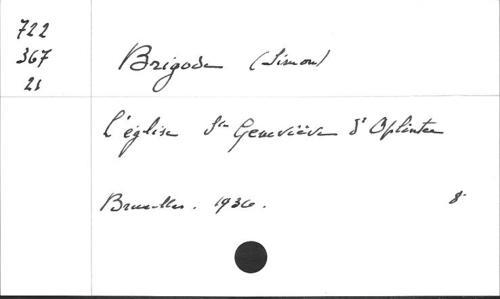 722
367
21
Brigode (Simon)
L'église Ste Geneviève d'Oplinter
Bruxelles. 1936. 8°